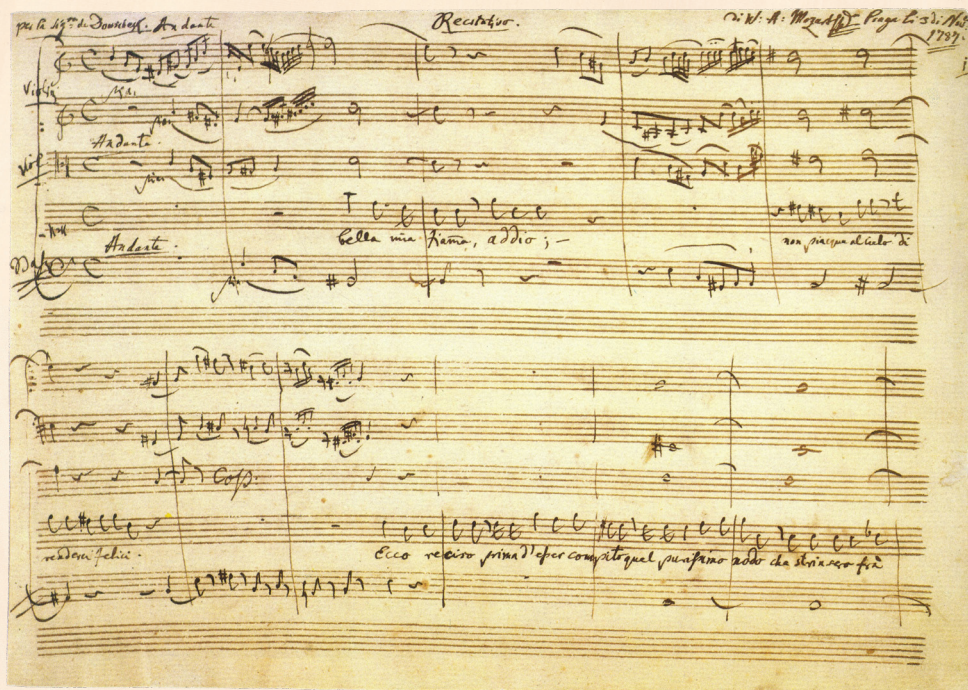 per la Sig.ra de Douschek. Andante
Recitativo.
Di W: A: Mozart Praga li 3 di Nov.
1787.
Violin
Andante.
Viol
bella mia fiama, addio; –
non piacque al cielo di
Andante.
renderci felici.
Ecco reciso prima d'esser compito quel purissimo nodo che strinsero frà